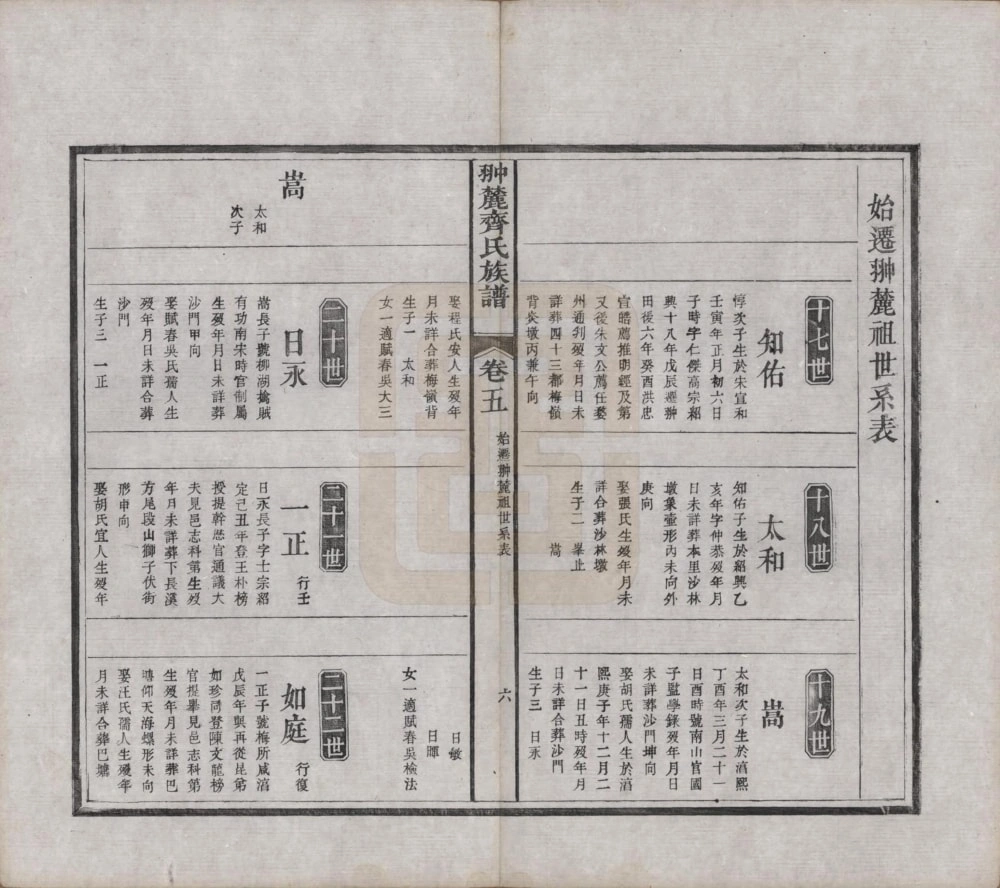 始遷翀麓祖世系表
十七世
知佑
惇次子生於宋宣和
壬寅年正月初六日
子時字仁傑高宗紹
興十八年戊辰遷翀
田後六年癸酉洪忠
宣皓薦推明經及第
又後朱文公薦任婺
州通判歿年月日未
詳葬四十三都梅嶺
背炭墩丙兼午向
十八世
太和
知佑子生於紹興乙
亥年字仲恭歿年月
日未詳葬本里沙林
墩象壷形丙未向外
庚向
娶張氏生歿年月未
詳合葬沙林墩
生子二 畢止 嵩
十九世
嵩
太和次子生於湻熙
丁酉年三月二十一
日酉時號南山官國
子監學錄歿年月日
未詳葬沙門坤向
娶胡氏孺人生於湻
熙庚子年十二月二
十一日丑時歿年月
日未詳合葬沙門
生子三 日永
翀麓齊氏族譜
卷五
始遷翀麓祖世系表
六
娶程氏安人生歿年
月未詳合葬梅嶺背
生子一 太和
女一適賦春吳大三
日敏
日暉
女一適賦春吳檢法
嵩
太和
次子
二十世
日永
嵩長子號柳湖擒賊
有功南宋時官制屬
生歿年月日未詳葬
沙門甲向
娶賦春吳氏孺人生
歿年月日未詳合葬
沙門
生子三 一正
二十一世
一正
行壬
日永長子字士宗紹
定己丑年登王朴榜
授提幹歷官通議大
夫見邑志科第生歿
年月未詳葬下長溪
方尾段山獅子伏街
形申向
娶胡氏宜人生歿年
二十二世
如庭
行復
一正子號梅所咸湻
戊辰年與再從昆弟
如珍同登陳文龍榜
官提舉見邑志科第
生歿年月未詳葬巴
塘仰天海螺形未向
娶汪氏孺人生歿年
月未詳合葬巴塘